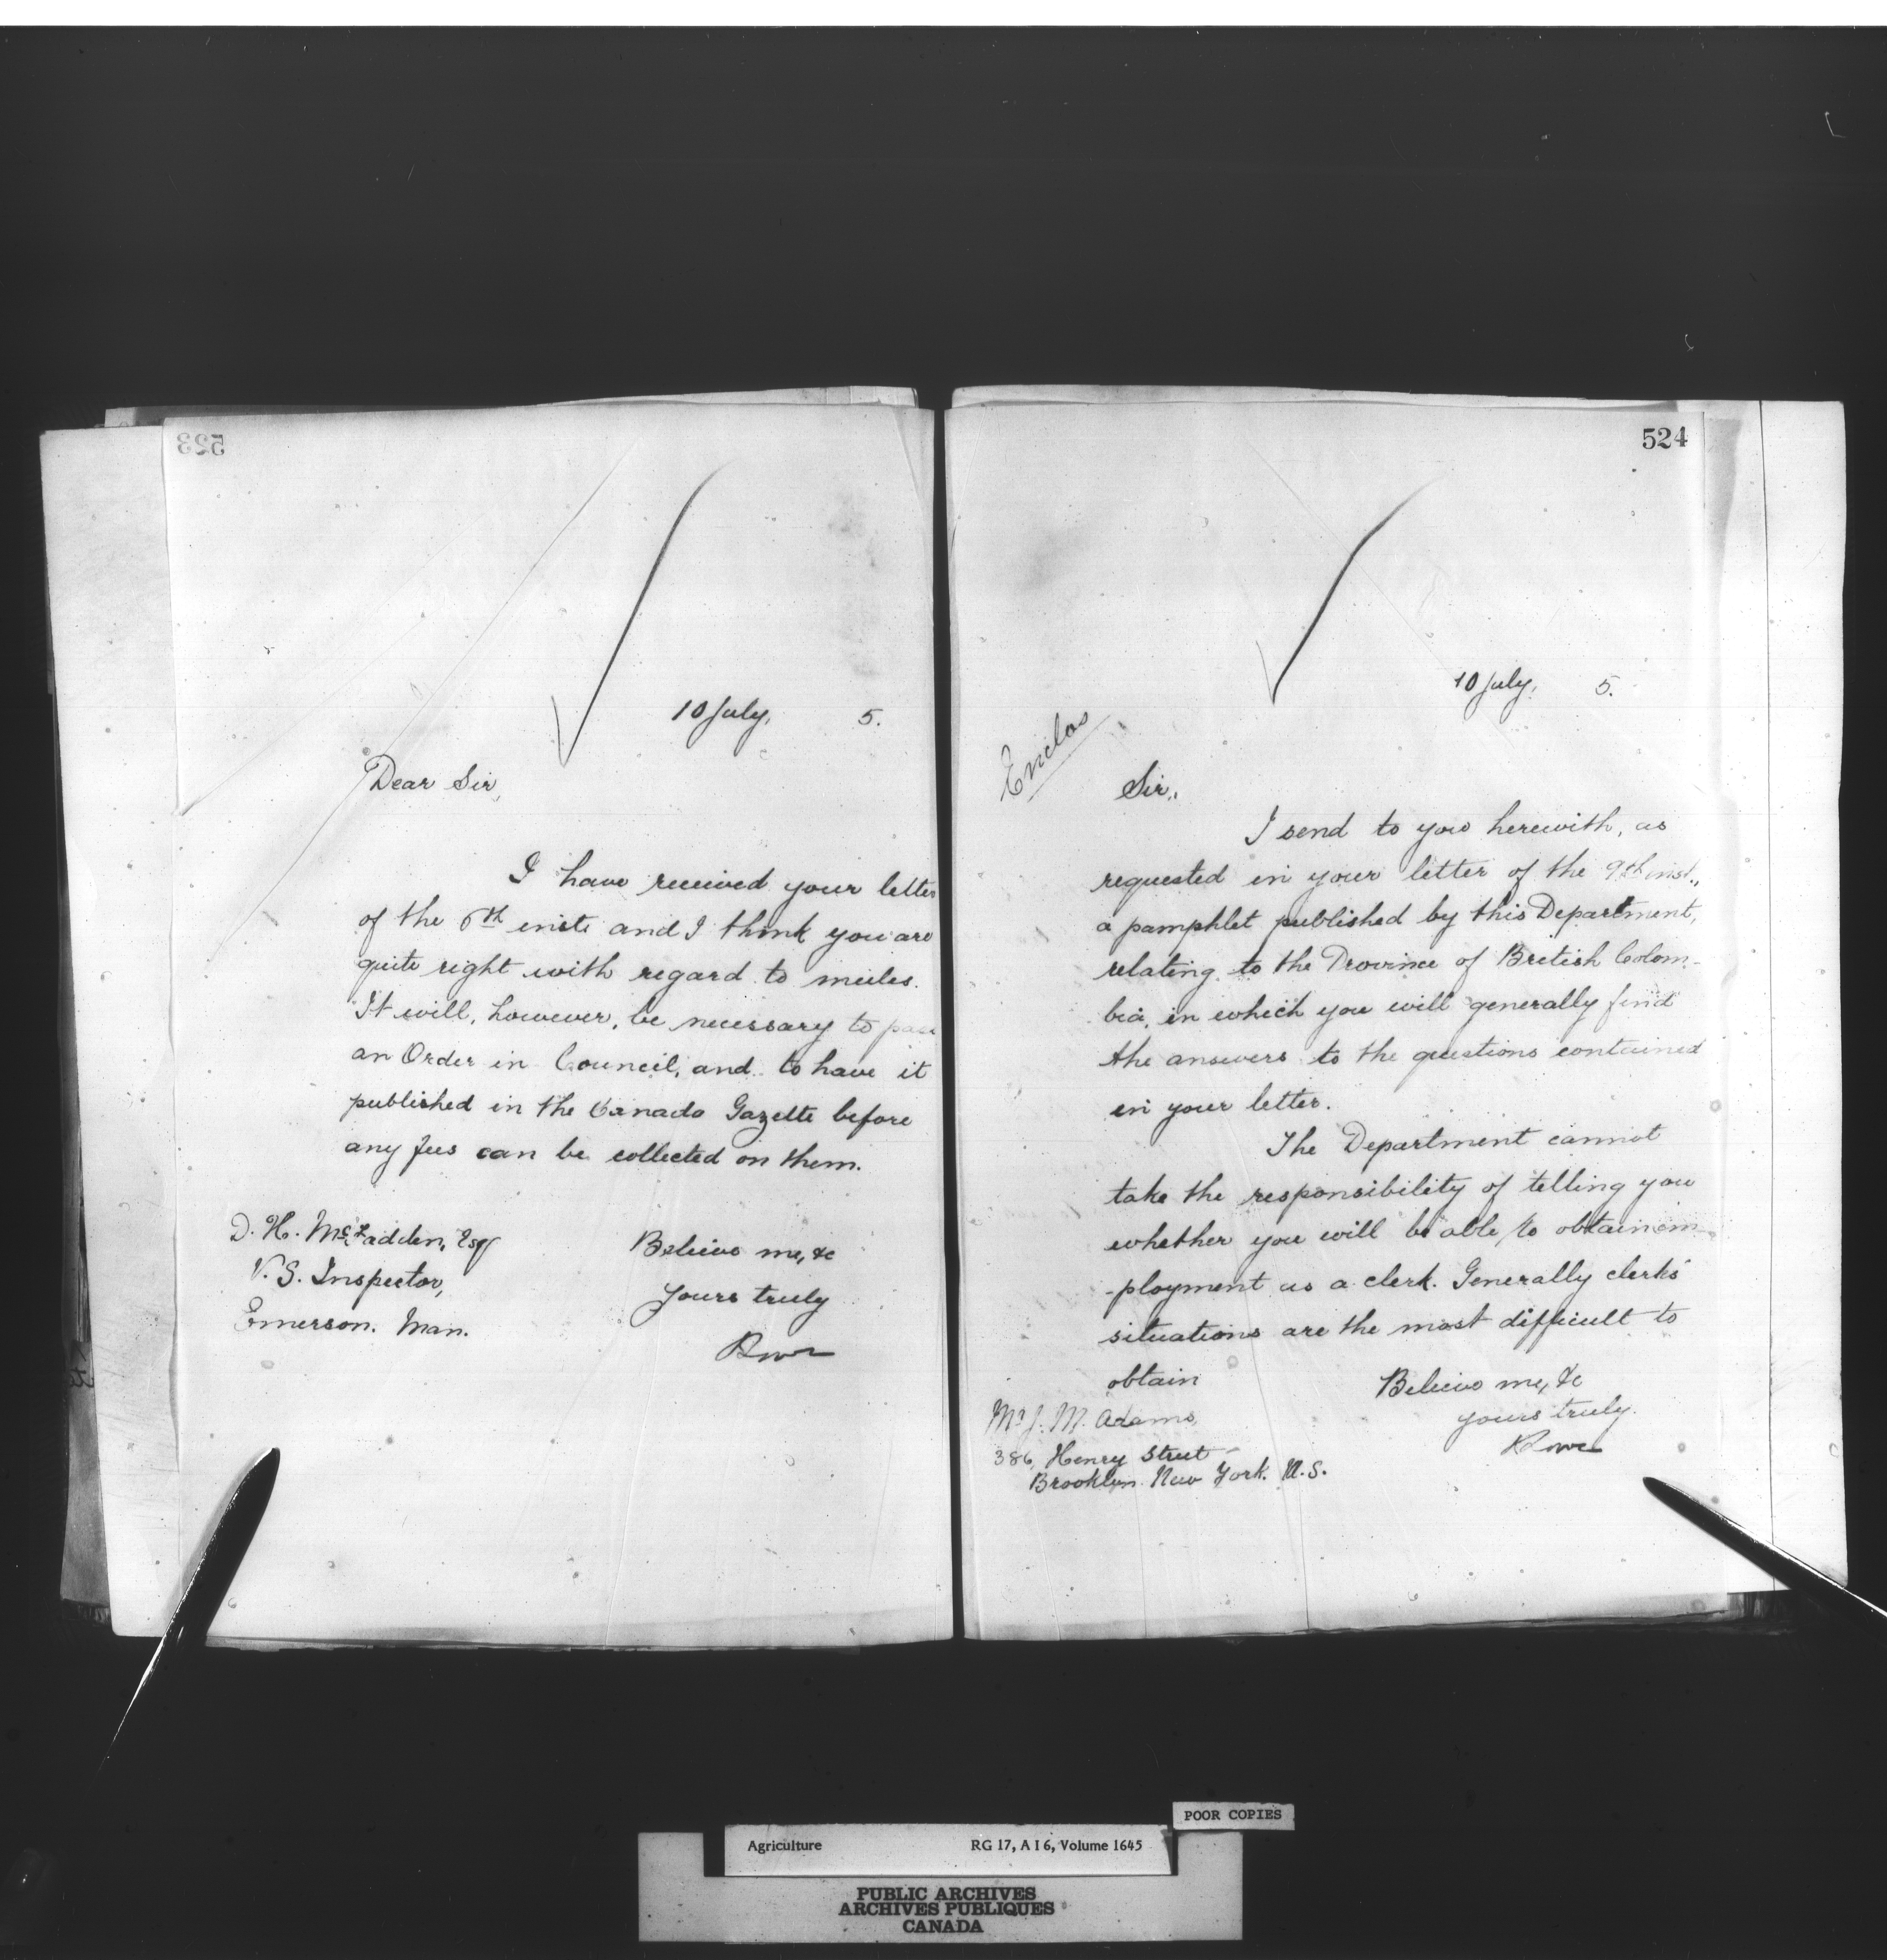 523
10 July, 5.
Dear Sir,
I have received your letter
of the 6th inst. and I think you are
quite right with regard to mules.
It will, however, be necessary to pass
an Order in Council, and to have it
published in the Canada Gazette before
any fees can be collected on them.
D. H. McFadden, Esq
V. S. Inspector,
Emerson. Man.
Believe me, &c
Yours truly
524
10 July, 5.
Enclos
Sir,
I send to you herewith, as
requested in your letter of the 9th inst.,
a pamphlet published by this Department,
relating to the Province of British Colom-
bia, in which you will generally find
the answers to the questions contained
in your letter.
The Department cannot
take the responsibility of telling you
whether you will be able to obtain em-
-ployment as a clerk. Generally clerks'
situations are the most difficult to
obtain
Believe me, &c
yours truly.
Mr J. M. Adams,
386, Henry Street
Brooklyn. New York. U.S.
POOR COPIES
Agriculture RG 17, A I 6, Volume 1645
PUBLIC ARCHIVES
ARCHIVES PUBLIQUES
CANADA